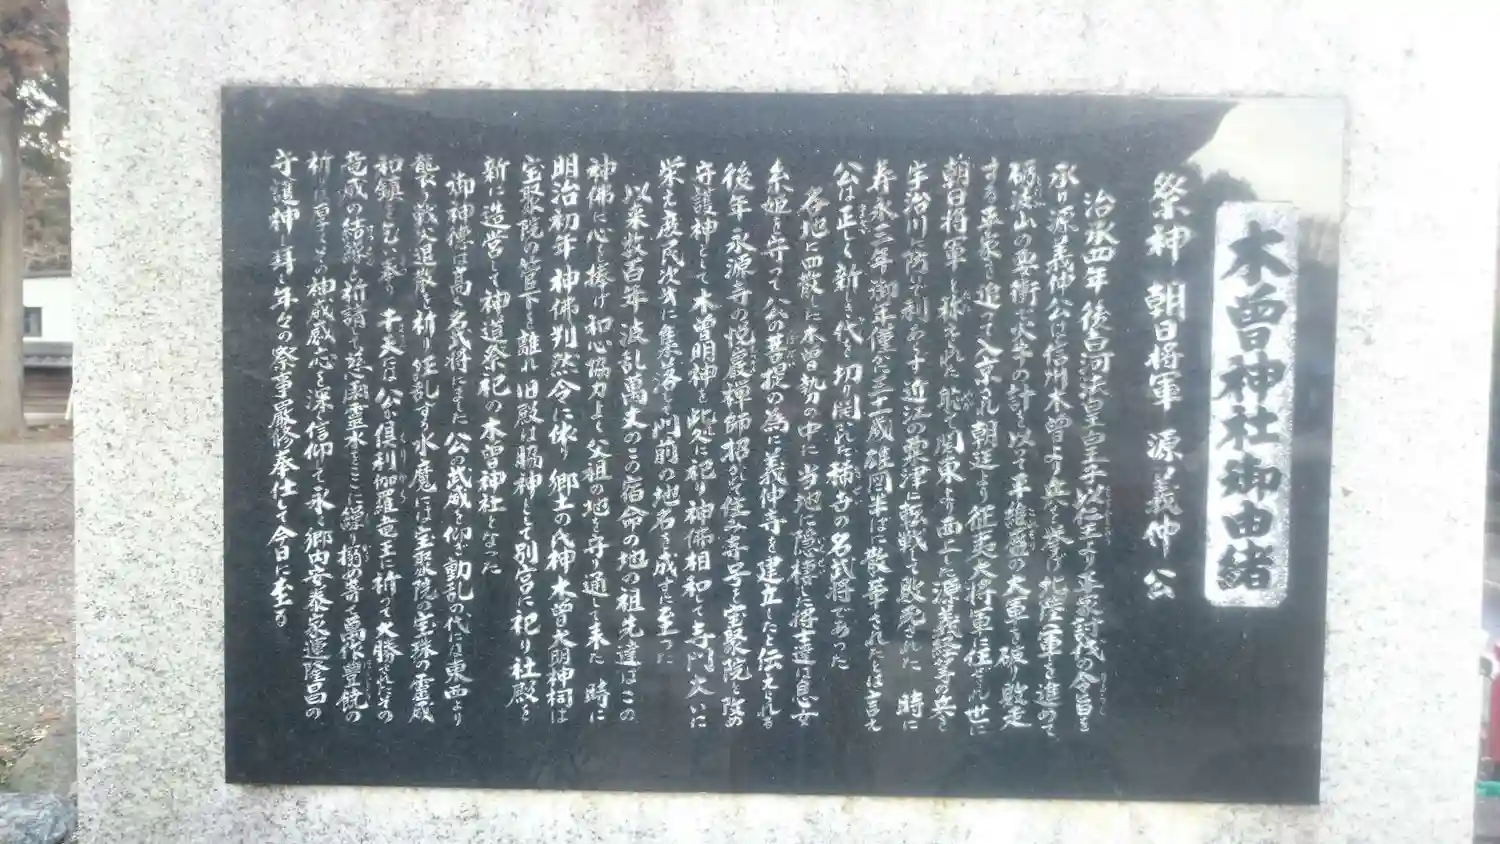 木曽神社御由緒
祭神 朝日将軍 源義仲公
治承四年 後白河法皇皇子以仁王より平家討伐の令旨を
承り源義仲公は信州木曽より兵を挙げ北陸に軍を進めて
砺波山の要衝に火牛の計を以って平維盛の大軍を破り敗走
する平家を追って入京され朝廷より征夷大将軍に任ぜられ世に
朝日将軍と称された 能て関東より西上した源義経等の兵を
宇治川に防いで利あらず近江の粟津に転戦して敗死された 時に
寿永三年御年僅かに三十一歳雄図半ばに散華されたとは言え
公は正しく新しき代を切り開かれた稀寺の名武将であった
各地に四散した木曽勢の中に当地に隠棲した将士達は息女
糸姫を守って公の菩提の為に義仲寺を建立したと伝えられる
後年 永源寺の悦巖禅師招かれて住し寺号を宝聚院と改め
守護神として木曽明神を此処に祀り神佛相和して寺門大いに
栄え庶民次第に集落して門前の地名を成すに至った
以来数百年波乱萬丈のこの宿命の地の祖先達はこの
神佛に心を捧げ和心協力よく父祖の地を守り通して来た 時に
明治初年神佛判然令に依り郷土の氏神木曽大明神祠は
宝聚院の管下を離れ旧殿は脇神として別宮に祀り社殿を
新に造営して神道祭祀の木曽神社となった
御神徳は高く名武将にました公の武威を仰ぎ動乱の代には東西より
襲う戦火退散を祈り狂乱する水魔には宝聚院の宝珠の霊威
和鎮を乞い奉り 干天には公が倶利伽羅竜王に祈って大勝されたその
竜威の結縁を祈請して慈雨霊水をここに繰り 萬作豊饒の
祈りは直ちにその神威感応を深く信仰して永く郷内安泰家運隆昌の
守護神と拝し年々の祭事厳修奉仕して今日に至る